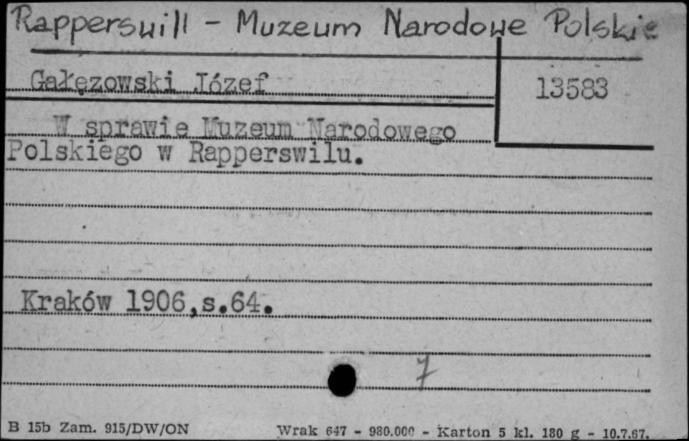 Rapperswill - Muzeum Narodowe Polskie
Gałęzowski Józef
13583
W sprawie Muzeum Narodowego
Polskiego w Rapperswilu.
Kraków 1906,s.64.
7
B 15b Zam. 915/DW/ON Wrak 647 - 980.000 - Karton 5 kl. 180 g - 10.7.67.